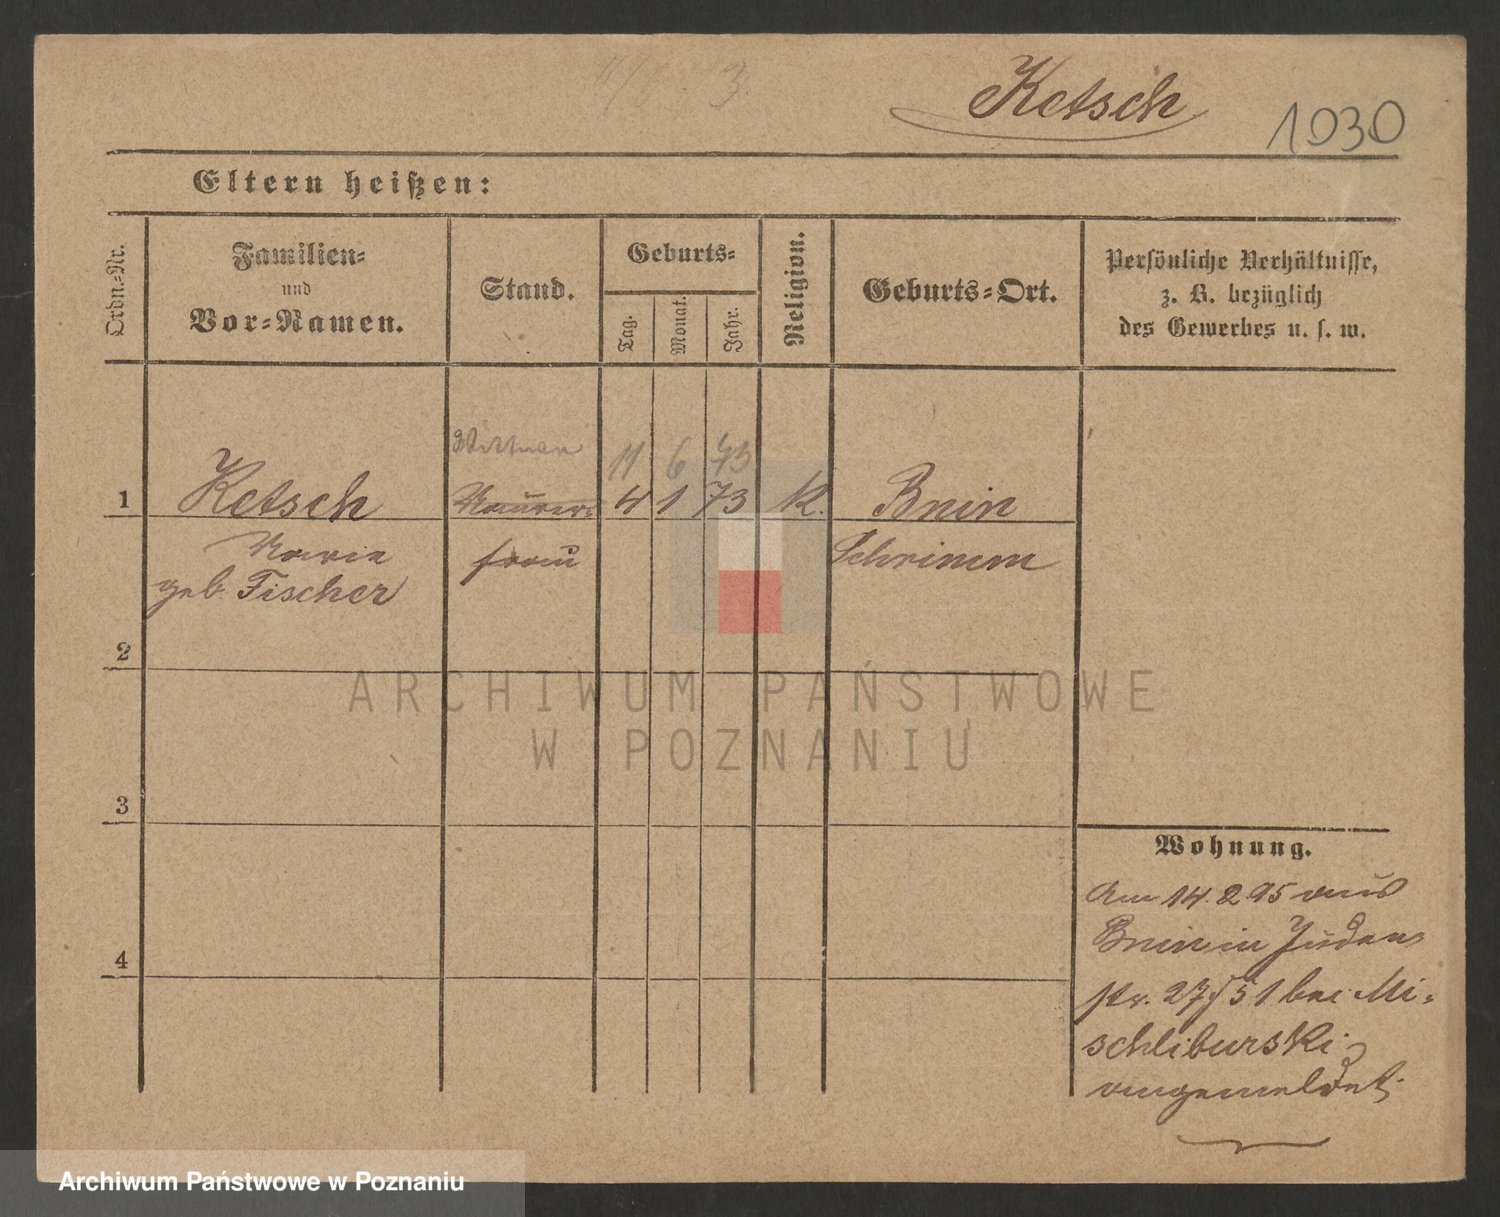 Ketsch
1030
Eltern heißen:
Ordn.-Nr.
Familien-
und
Vor-Namen.
Stand.
Geburts-
Tag.
Monat.
Jahr.
Religion.
Geburts-Ort.
Persönliche Verhältnisse,
z. B. bezüglich
des Gewerbes u. s. w.
11 6 73
1 Ketsch Maurer- 4 1 73 K. Bnin
Marie frau Schrimm
geb. Fischer
2
3
4
Wohnung.
Am 14.2.95 aus
Bnin in Juden
str. 27/51 bei Mi-
schliburski
angemeldet.
ARCHIWUM PAŃSTWOWE
W POZNANIU
Archiwum Państwowe w Poznaniu